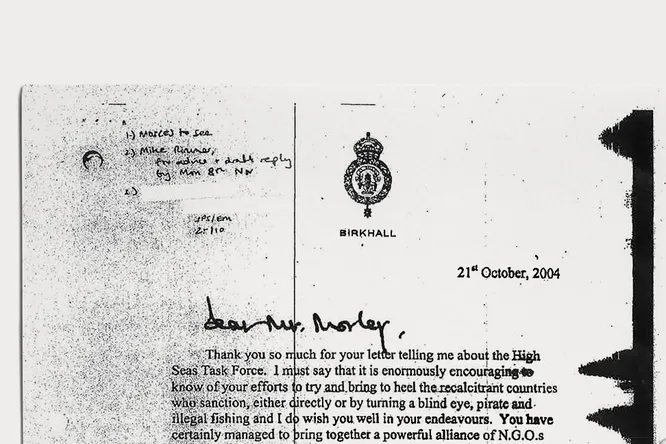 1) Morces to see
2) Mike
for advice + draft reply
by Mon 8th Nov
2)
JPS/EM
25/10
BIRKHALL
21st October, 2004
dear Mr. Morley,
Thank you so much for your letter telling me about the High
Seas Task Force. I must say that it is enormously encouraging to
know of your efforts to try and bring to heel the recalcitrant countries
who sanction, either directly or by turning a blind eye, pirate and
illegal fishing and I do wish you well in your endeavours. You have
certainly managed to bring together a powerful alliance of N.G.O.s